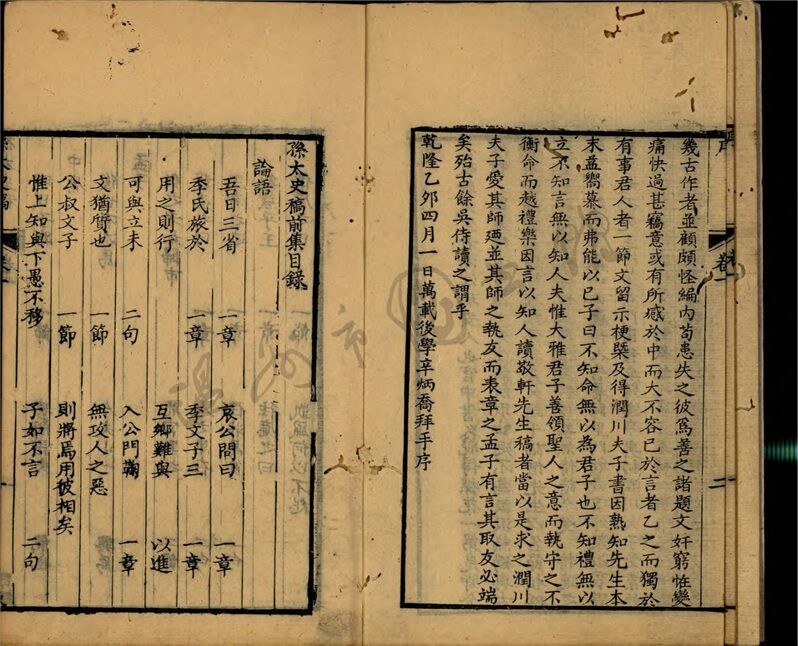 幾古作者並顧頗怪編內苟患失之彼爲善之諸題文奸窮怪變
痛快過甚竊意或有所感於中而大不容已於言者乙之而獨於
有事君人者一節文留示梗槩及得潤川夫子書因熟知先生本
末益嚮慕而弗能以已子曰不知命無以為君子也不知禮無以
立不知言無以知人夫惟大雅君子善領聖人之意而執守之不
衡命而越禮樂因言以知人讀敬軒先生稿者當以是求之潤川
夫子愛其師廼並其師之執友而表章之孟子有言其取友必端
矣殆古餘吳侍讀之謂乎
乾隆乙夘四月一日萬載後學辛炳喬拜手序
二
孫太史稿前集目錄
論語
吾日三省 一章 哀公問曰 一章
季氏旅於 一章 季文子三 一章
用之則行 互鄉難與 以進
可與立未 二句 入公門鞠 一章
文猶質也 一節 無攻人之惡
公叔文子 一節 則將焉用彼相矣
惟上知與下愚不移 子如不言 二句